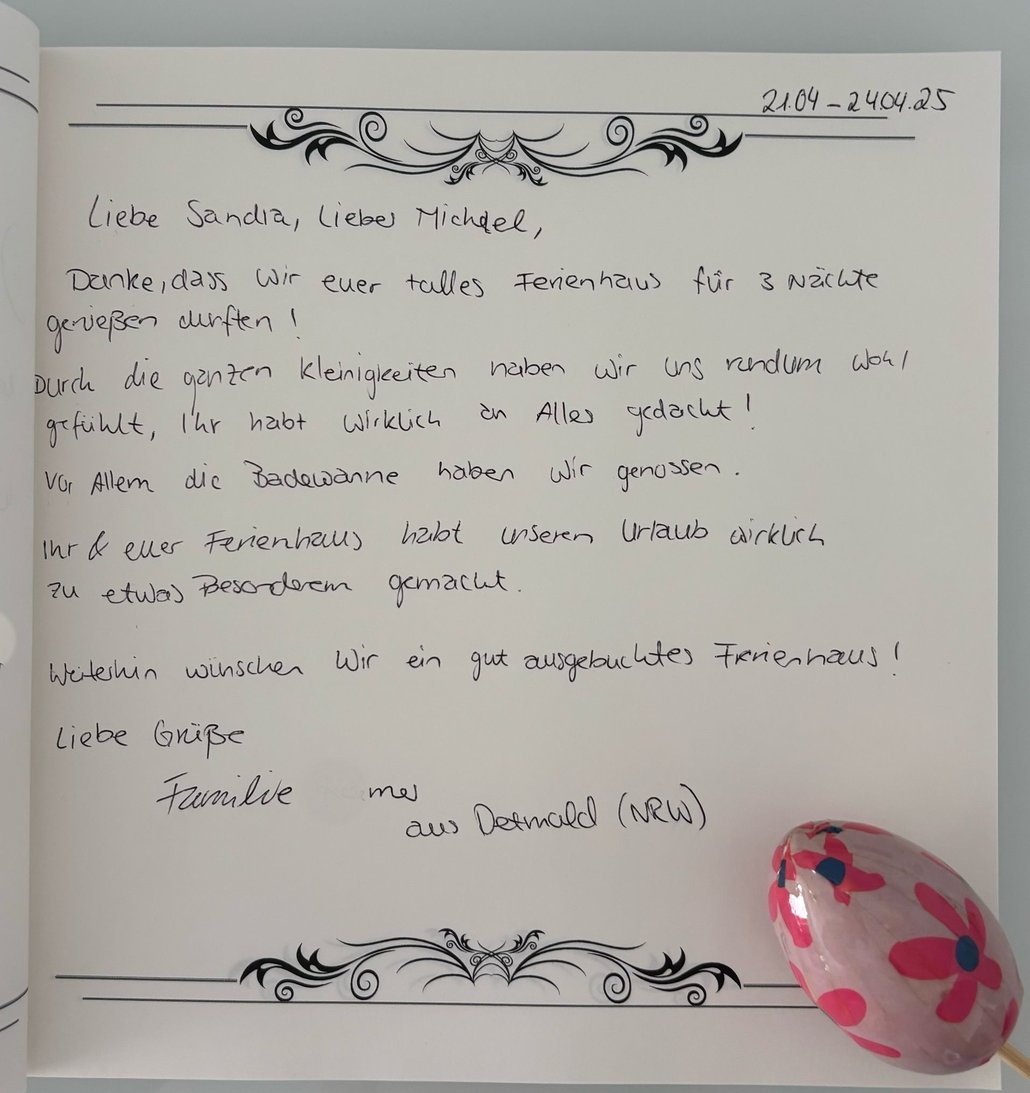 21.04 - 24.04.25
Liebe Sandra, Lieber Michael,
Danke, dass wir euer tolles Ferienhaus für 3 Nächte
genießen durften!
Durch die ganzen Kleinigkeiten haben wir uns rundum wohl
gefühlt, Ihr habt wirklich an Alles gedacht!
Vor Allem die Badewanne haben wir genossen.
Ihr & euer Ferienhaus habt unseren Urlaub wirklich
zu etwas Besonderem gemacht.
Weiterhin wünschen Wir ein gut ausgebuchtes Ferienhaus!
Liebe Grüße
Familie
aus Detmold (NRW)